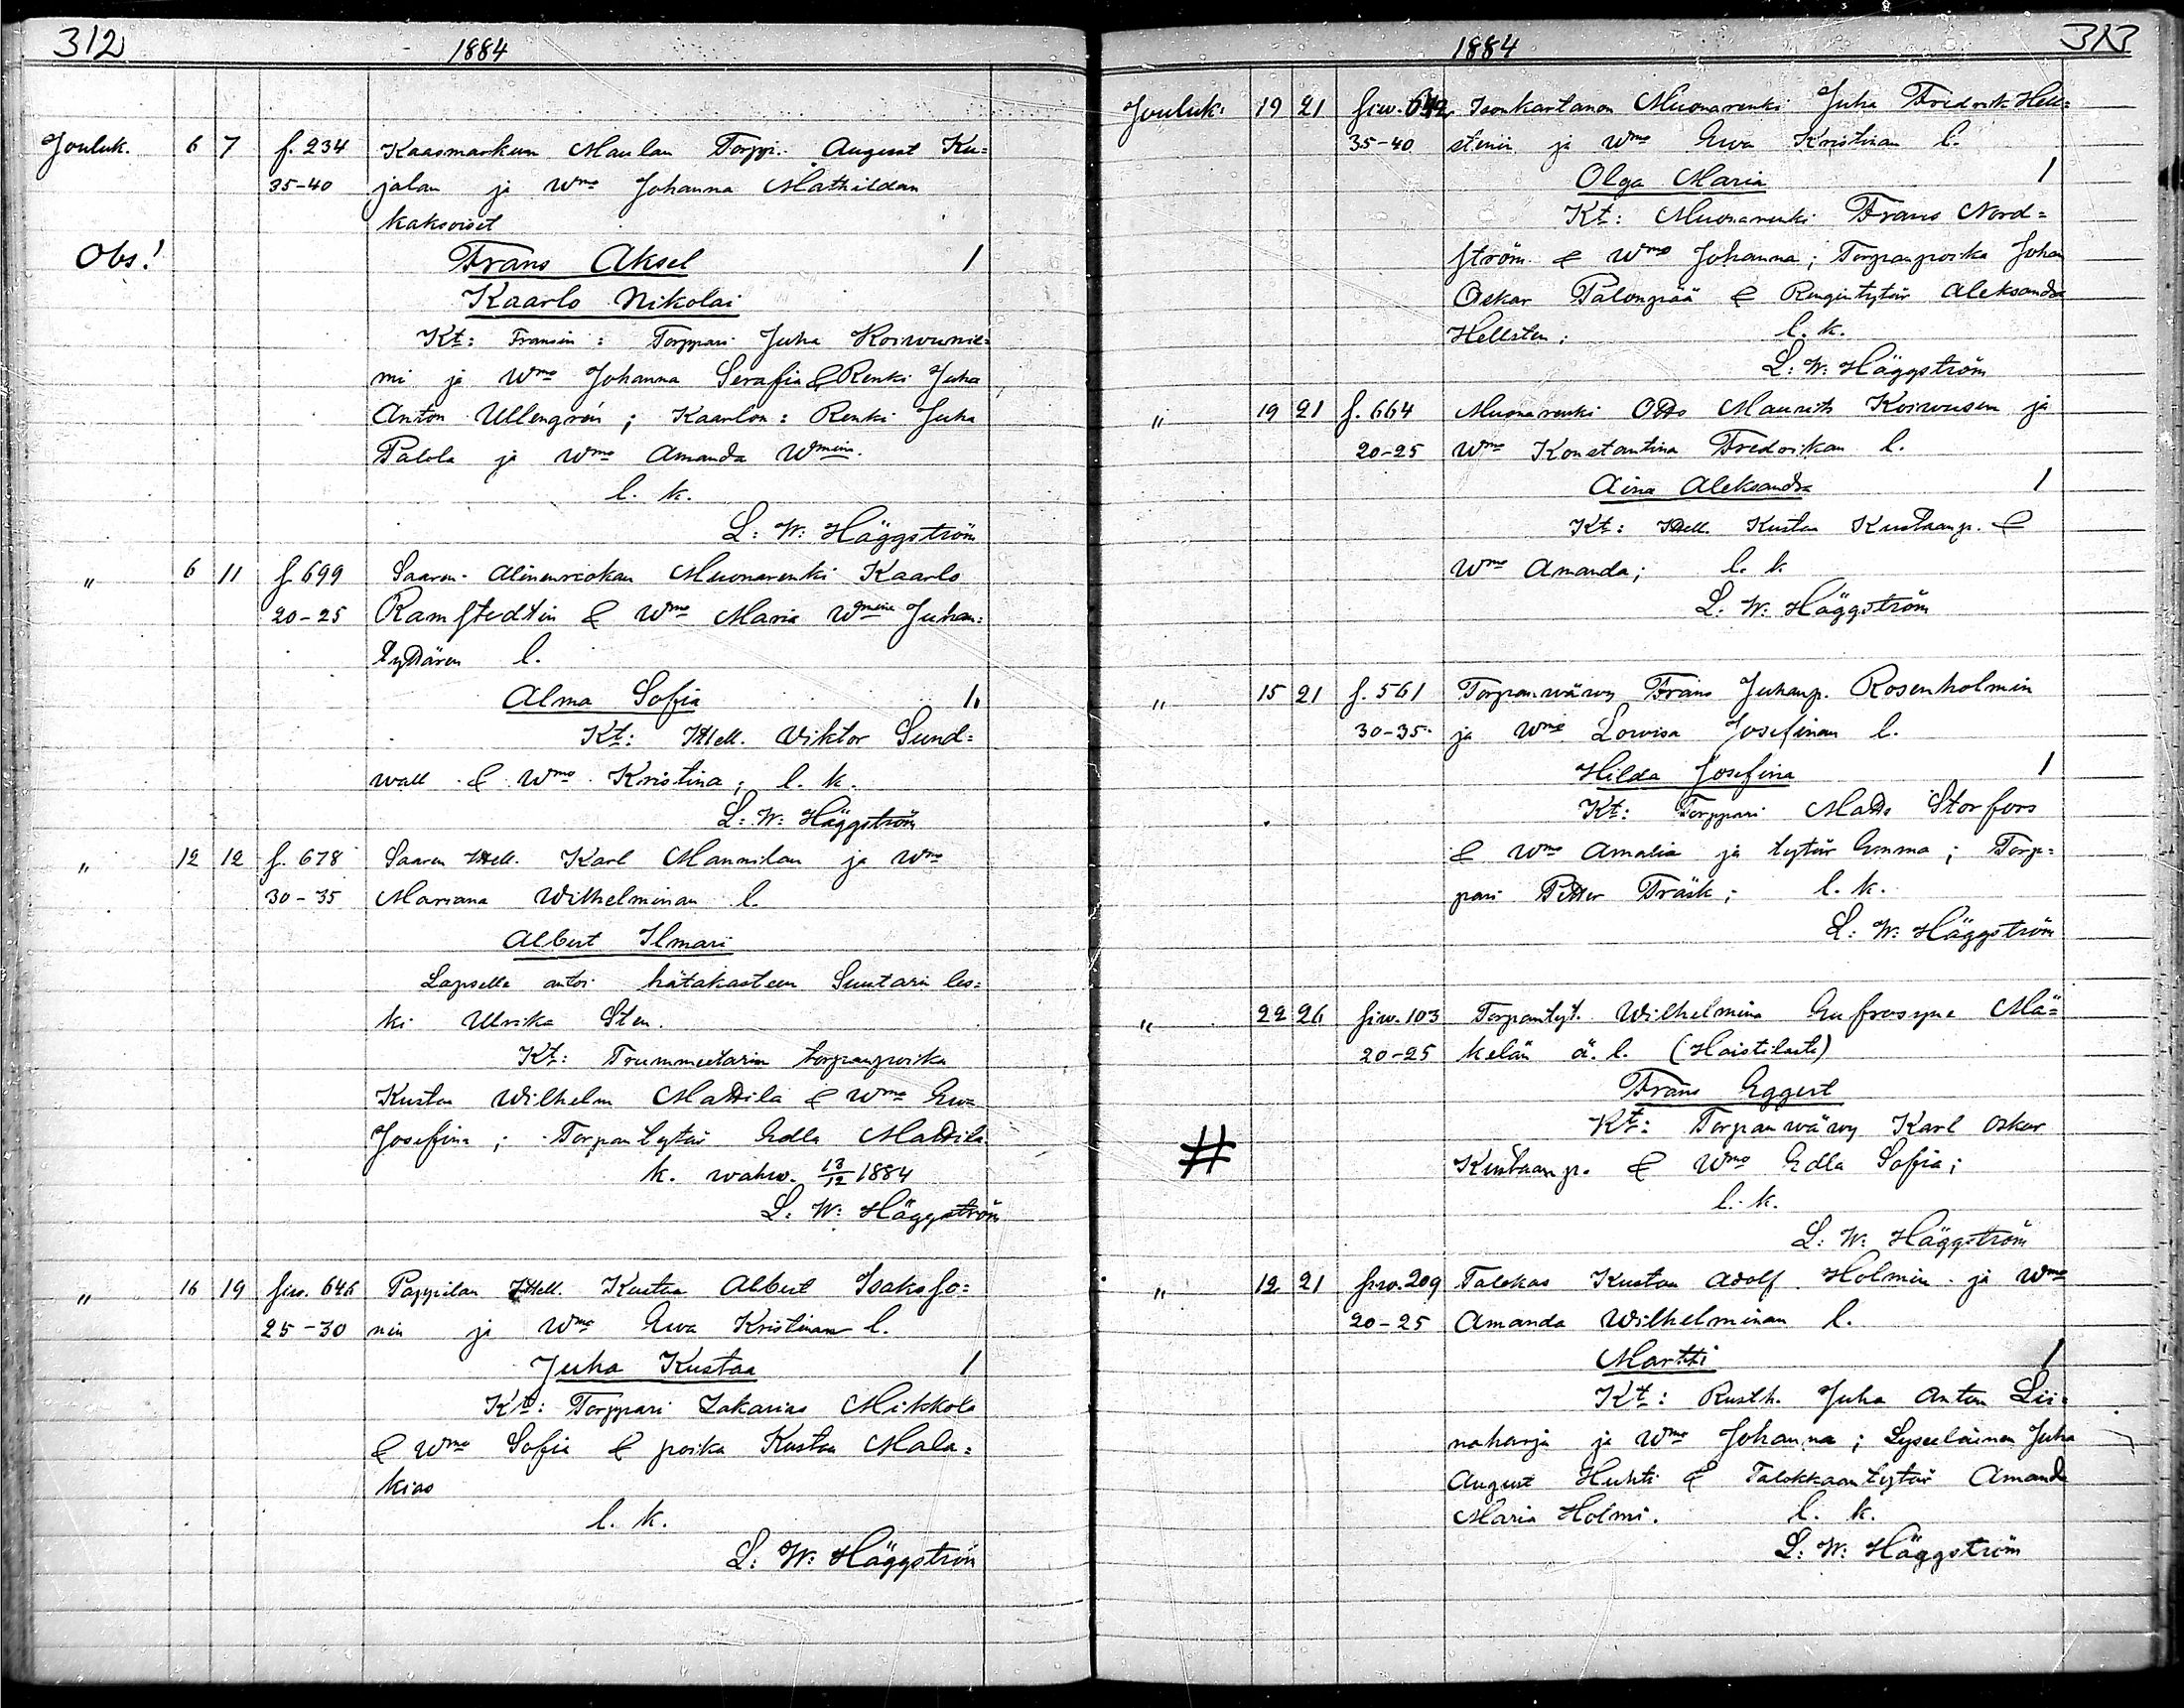 312
1884
Jouluk. 6 7 f. 234 Kaasmarkun Maulan Torpp. August Ku=
35-40 jalan ja Wmo Johanna Mathildan
kaksoiset
Obs! Frans Aksel 1
Kaarlo Nikolai
Kt: Fransin: Torppari Juha Koivunie=
mi ja Wmo Johanna Serafia & Renki Juha
Anton Ullengrén; Kaarlon: Renki Juha
Palola ja Wmo Amanda Wmiin.
l. k.
L: W: Häggström
" 6 11 f. 699 Saaren Muonarenki Kaarlo
20-25 Ramstedtin & Wmo Maria Wmiin Juhan=
tyttären l.
Alma Sofia 1.
Kt: Itsell. Viktor Sund=
wall & Wmo Kristina; l. k.
L: W: Häggström
" 12 12 f. 678 Saaren Itsell. Karl Mannilan ja Wmo
30-35 Mariana Wilhelminan l.
Albert Ilmari
Lapselle antoi hätäkasteen Suutarin les=
ki Ulrika Sten.
Kt: Trummetarin torpanpoika
Kustaa Wilhelm Mattila & Wmo Ewa
Josefina; Torpantytär Edla Mattila
k. wahw. 13/12 1884
L: W: Häggström
" 16 19 siw. 646 Pappilan Itsell. Kustaa Albert Isaksso=
25-30 nin ja Wmo Ewa Kristinan l.
Juha Kustaa 1
Kt: Torppari Zakarias Mikkola
& Wmo Sofia & poika Kustaa Mala=
kias
l. k.
L: W: Häggström
1884
313
Jouluk. 19 21 siw. 642 Isonkartanon Muonarenki Juha Fredrik Hell=
35-40 stenin ja Wmo Ewa Kristinan l.
Olga Maria 1
Kt: Muonarenki Frans Nord=
ström & Wmo Johanna; Torpanpoika Johan
Oskar Palonpää & Rengintytär Aleksandra
Hellsten; l. k.
L: W: Häggström
" 19 21 f. 664 Muonarenki Otto Maurits Koiwusen ja
20-25 Wmo Konstantina Fredrikan l.
Aina Aleksandra 1
Kt: Itsell. Kustaa Kustaanp. &
Wmo Amanda; l. k.
L: W: Häggström
" 15 21 f. 561 Torpanwäwy Frans Juhanp. Rosenholmin
30-35 ja Wmo Lowisa Josefinan l.
Hilda Josefina 1
Kt: Torppari Matts Storfors
& Wmo Amalia ja tytär Emma; Torp=
pari Petter Träsk; l. k.
L: W: Häggström
" 22 26 siw. 103 Torpantyt. Wilhelmina Eufrosyne Mä=
20-25 kelän ä. l. (Haistilasta)
Frans Eggert
Kt: Torpanwäwy Karl Oskar
# Kustaanp. & Wmo Edla Sofia;
l. k.
L: W: Häggström
" 12 21 siw. 209 Talokas Kustaa Adolf Holmin ja Wmo
20-25 Amanda Wilhelminan l.
Martti 1
Kt: Rusth. Juha Anton Lii=
naharja ja Wmo Johanna; Lyseelainen Juha
August Huhti & Talokkaantytär Amanda
Maria Holmi. l. k.
L: W: Häggström